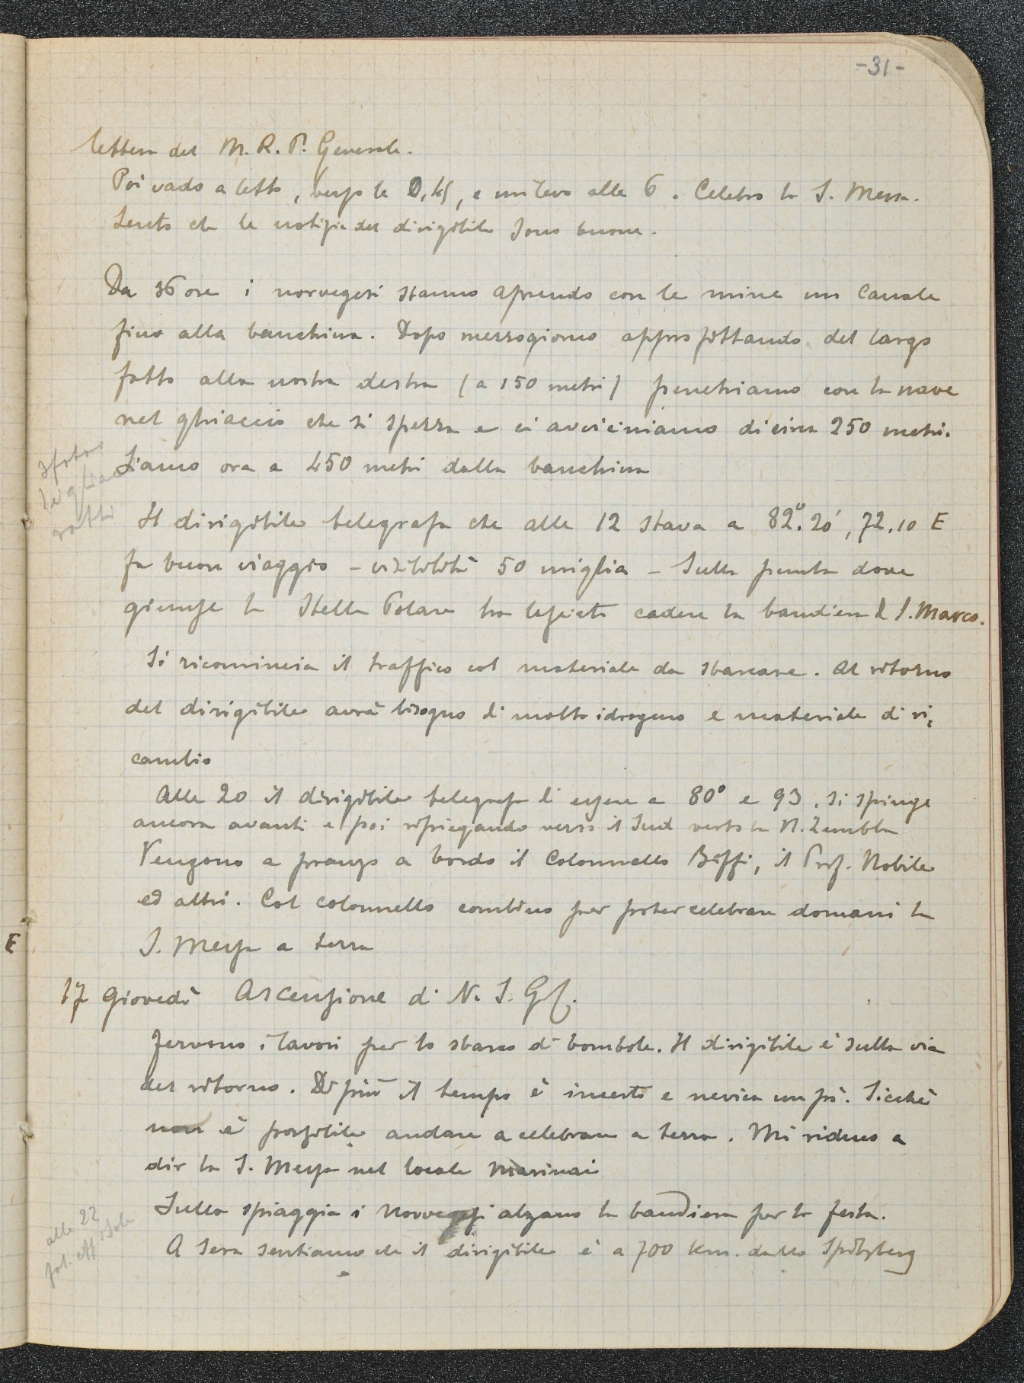 -31-
lettera del M. R. P. Generale.
Poi vado a letto, verso le 0,45, e mi levo alle 6. Celebro la S. Messa.
Sento che le notizie del dirigibile sono buone.
Da 36 ore i norvegesi stanno aprendo con le mine un canale
fino alla banchina. Dopo mezzogiorno approfittando del largo
fatto alla nostra destra (a 150 metri) penetriamo con la nave
nel ghiaccio che si spezza e ci avviciniamo di circa 250 metri.
Siamo ora a 450 metri dalla banchina
3 foto
rotti
Il dirigibile telegrafa che alle 12 stava a 82°.20', 72.10 E
fa buon viaggio - visibilità 50 miglia - Sulla punta dove
giunse la Stella Polare ha lasciato cadere la bandiera di S. Marco.
Si ricomincia il traffico col materiale da sbarcare. Al ritorno
del dirigibile avrà bisogno di molto idrogeno e materiale di ri-
cambio
Alle 20 il dirigibile telegrafa di essere a 80° e 93. Si spinge
ancora avanti e poi ripiegando verso il Sud verso la N. Zembla
Vengono a pranzo a bordo il Colonnello Baffi, il Prof. Nobile
ed altri. Col colonnello combino per poter celebrare domani la
S. Messa a terra
E
17 Giovedì Ascensione di N. S. G. C.
Fervono i lavori per lo sbarco di bombole. Il dirigibile è sulla via
del ritorno. Di più il tempo è incerto e nevica un pò. Sicchè
non è possibile andare a celebrare a terra. Mi riduco a
dir la S. Messa nel locale marinai
Sulla spiaggia i norvegesi alzano la bandiera per la festa.
A sera sentiamo che il dirigibile è a 700 km. dallo Spitzberg
alle 22
fot. sole